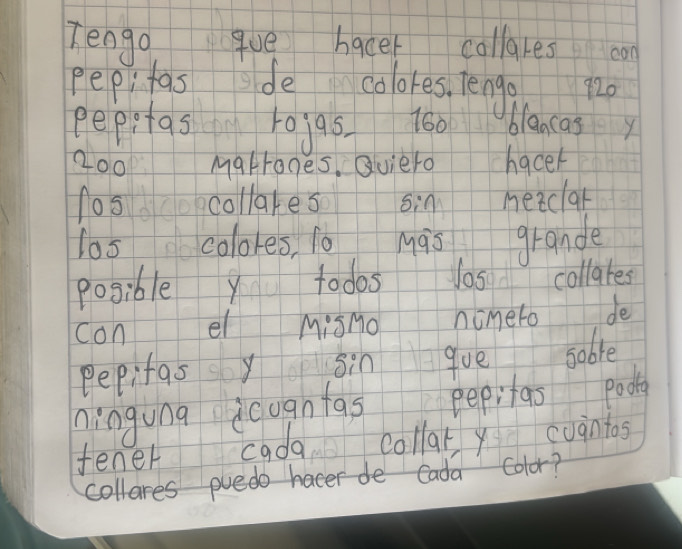 Tengo que hacer collares con
pepitas de colores. Tengo 120
pepitas rojas_ 160 blancas y
200 marrones. Quiero hacer
los collares sin mezclar
los colores, lo más grande
posible y todos los collares
con el mismo número de
pepitas y sin que sobre
ninguna ¿cuantas pepitas podra
tener cada collar y cuántos
collares puedo hacer de cada color?